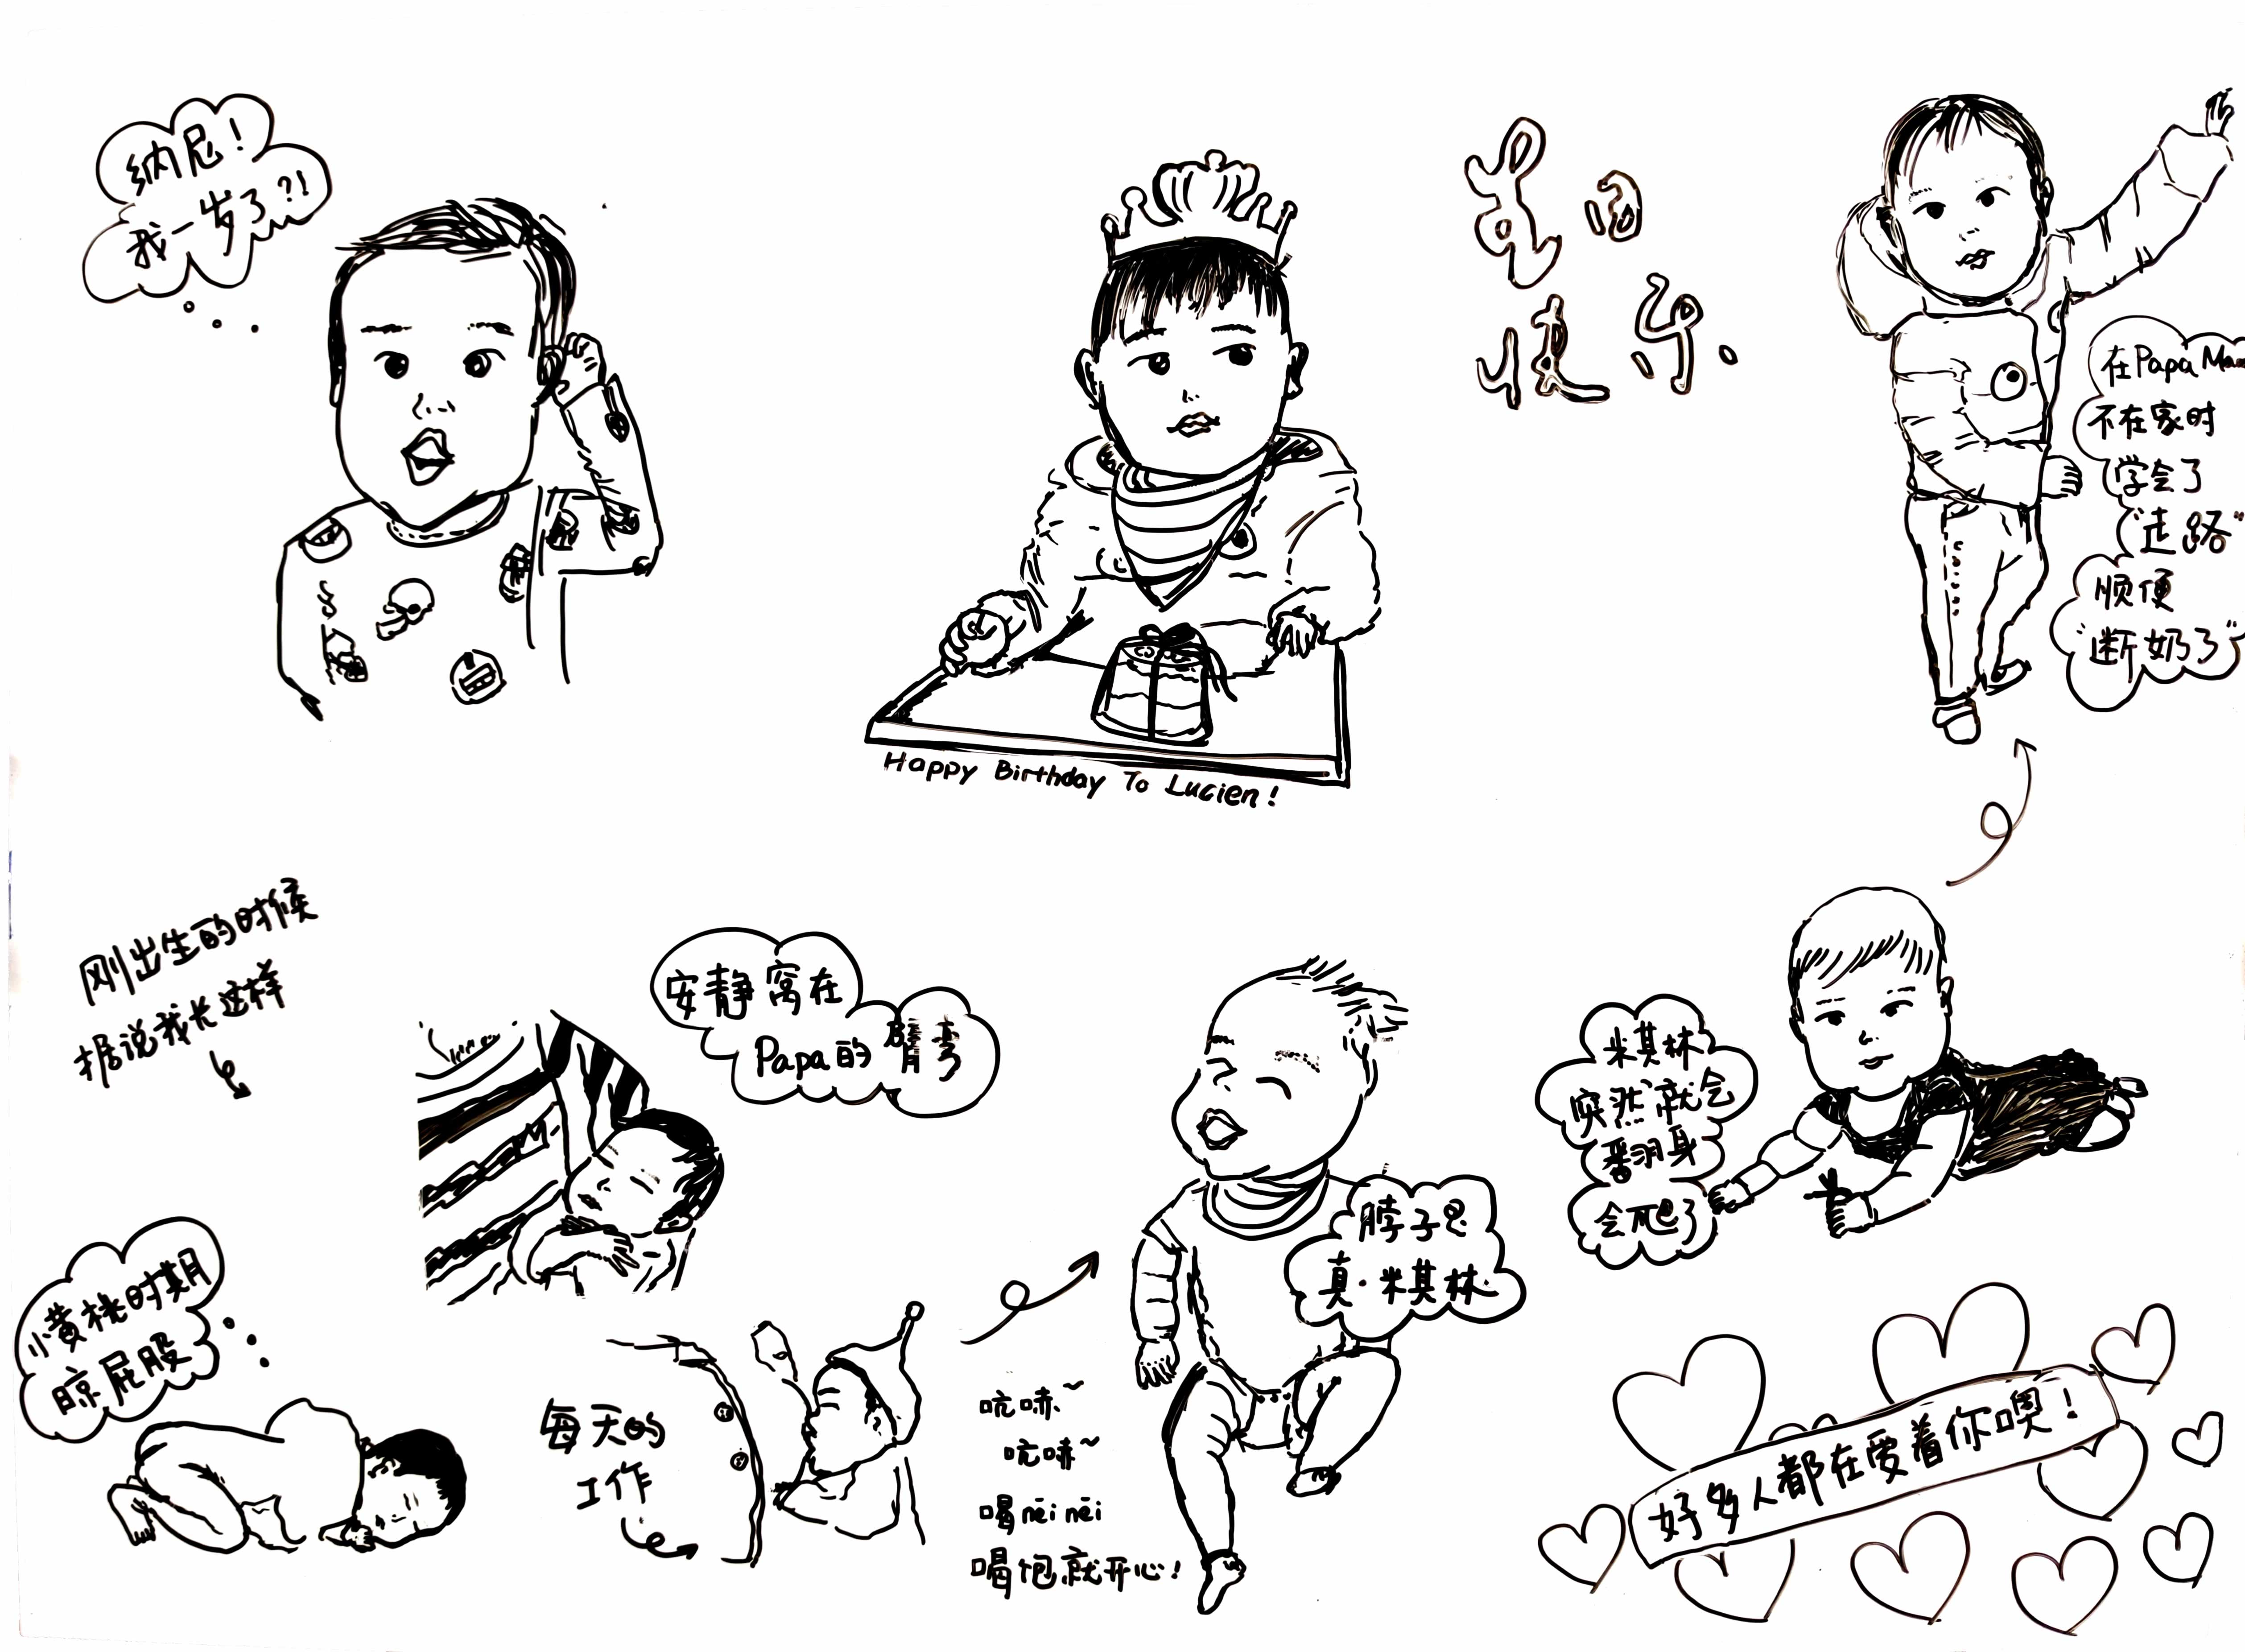 纳尼！
我一岁了?!
生日
快乐.
Happy Birthday To Lucien!
在Papa Mam
不在家时
学会了
"走路"
顺便
"断奶了"
刚出生的时候
据说我长这样
安静窝在
Papa的臂弯
小黄桃时期
晾屁股
每天的
工作
吭哧~
吭哧~
喝nēi nēi
喝饱就开心！
脖子呢
真·米其林
米其林
突然就会
翻身
会爬了
好多人都在爱着你噢！